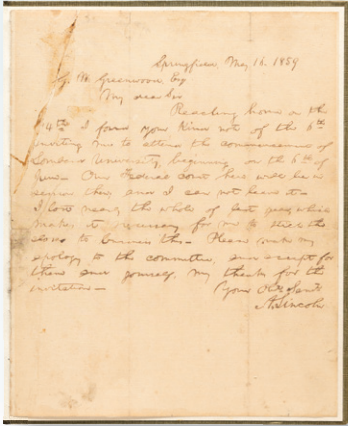 Springfield, May 16. 1859
G. M. Greenwood, Esq
My dear Sir
Reaching home on the
14th I found your kind note of the 6th
inviting me to attend the commencement of
University, beginning on the 6th of
June. Our Federal court here will be in
session then, and I can not leave it.
I lost nearly the whole of last year, which
makes it necessary for me to stick the
closer to business this. Please make my
apology to the committee, and accept for
them and yourself, my thanks for the
invitation.
Your Obt. Servt.
A. Lincoln